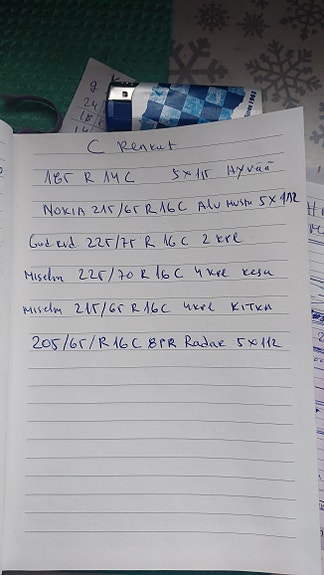 C Renkut
185 R 14 C 5x115 Hyvää
Nokia 215/65 R 16 C Alu musta 5x112
Gudrud 225/75 R 16 C 2 kpl
Miselin 225/70 R 16 C 4 kpl kesa
Miselin 215/65 R 16 C 4 kpl KITKA
205/65/R16C 8PR Radar 5x112